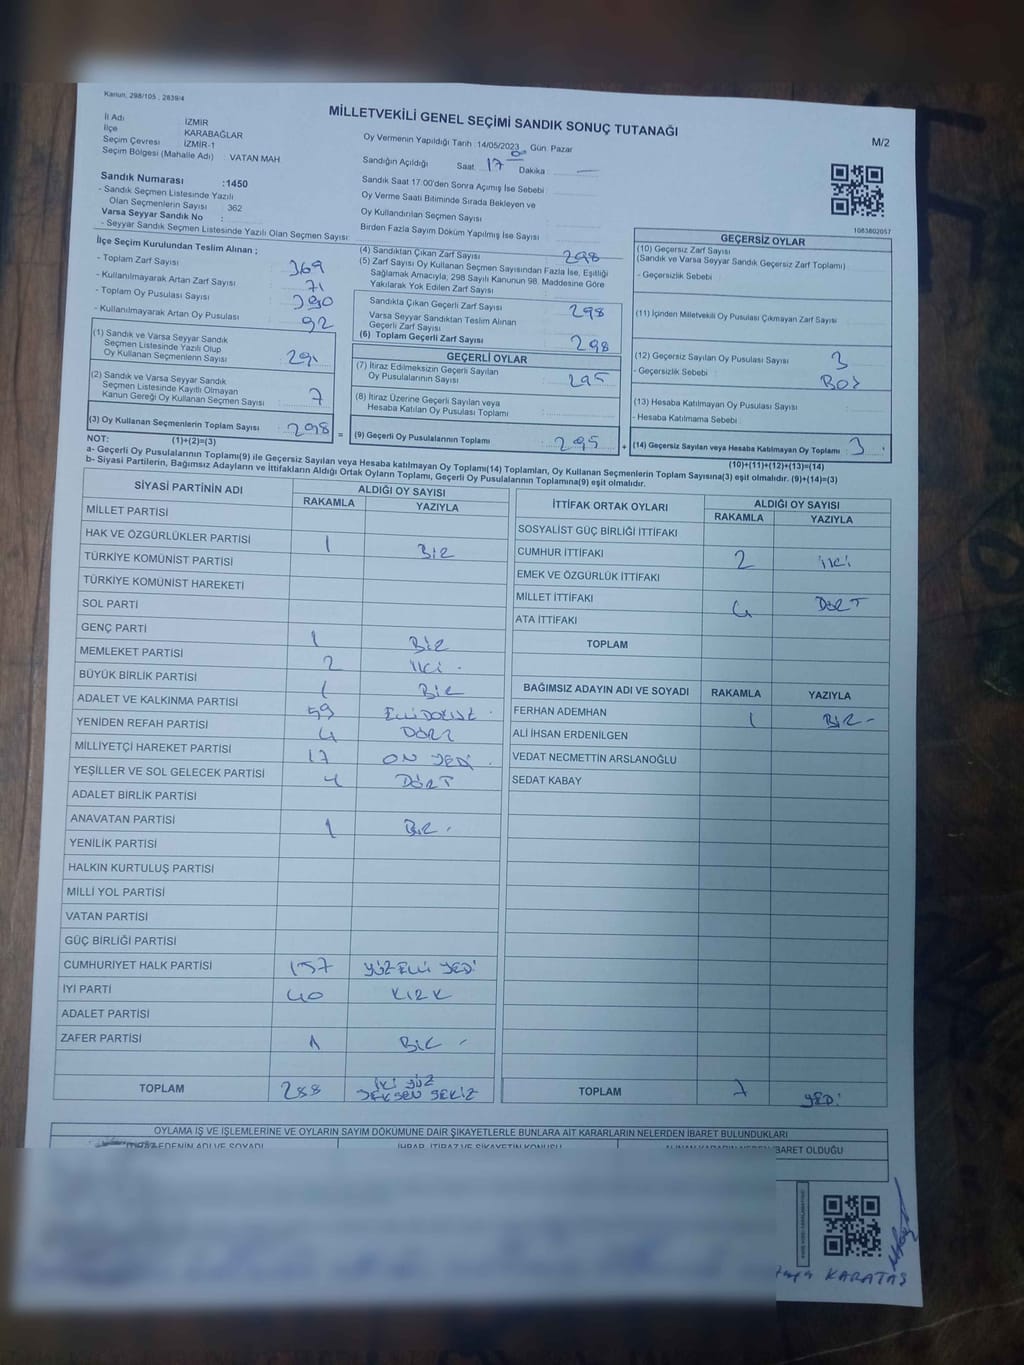 Kanun, 298/105 , 2839/4
MİLLETVEKİLİ GENEL SEÇİMİ SANDIK SONUÇ TUTANAĞI
M/2
İl Adı İZMİR
İlçe KARABAĞLAR
Seçim Çevresi İZMİR-1
Seçim Bölgesi (Mahalle Adı) : VATAN MAH
Oy Vermenin Yapıldığı Tarih 14/05/2023 Gün Pazar
Sandığın Açıldığı Saat 17 00 Dakika —
Sandık Saat 17.00'den Sonra Açımış İse Sebebi
Oy Verme Saati Bitiminde Sırada Bekleyen ve
Oy Kullandırılan Seçmen Sayısı
Birden Fazla Sayım Döküm Yapılmış İse Sayısı
1083802057
Sandık Numarası :1450
- Sandık Seçmen Listesinde Yazılı
Olan Seçmenlerin Sayısı 362
Varsa Seyyar Sandık No :
- Seyyar Sandık Seçmen Listesinde Yazılı Olan Seçmen Sayısı:
İlçe Seçim Kurulundan Teslim Alınan ;
- Toplam Zarf Sayısı 369
- Kullanılmayarak Artan Zarf Sayısı 71
- Toplam Oy Pusulası Sayısı 390
- Kullanılmayarak Artan Oy Pusulası 92
(1) Sandık ve Varsa Seyyar Sandık
Seçmen Listesinde Yazılı Olup
Oy Kullanan Seçmenlerin Sayısı 291
(2) Sandık ve Varsa Seyyar Sandık
Seçmen Listesinde Kayıtlı Olmayan
Kanun Gereği Oy Kullanan Seçmen Sayısı 7
(3) Oy Kullanan Seçmenlerin Toplam Sayısı : 298 =
(1)+(2)=(3)
(4) Sandıktan Çıkan Zarf Sayısı 298
(5) Zarf Sayısı Oy Kullanan Seçmen Sayısından Fazla İse, Eşitliği
Sağlamak Amacıyla, 298 Sayılı Kanunun 98. Maddesine Göre
Yakılarak Yok Edilen Zarf Sayısı
Sandıkta Çıkan Geçerli Zarf Sayısı 298
Varsa Seyyar Sandıktan Teslim Alınan
Geçerli Zarf Sayısı
(6) Toplam Geçerli Zarf Sayısı 298
GEÇERLİ OYLAR
(7) İtiraz Edilmeksizin Geçerli Sayılan
Oy Pusulalarının Sayısı : 295
(8) İtiraz Üzerine Geçerli Sayılan veya
Hesaba Katılan Oy Pusulası Toplamı
(9) Geçerli Oy Pusulalarının Toplamı : 295 +
GEÇERSİZ OYLAR
(10) Geçersiz Zarf Sayısı
(Sandık ve Varsa Seyyar Sandık Geçersiz Zarf Toplamı)
- Geçersizlik Sebebi
(11) İçinden Milletvekili Oy Pusulası Çıkmayan Zarf Sayısı
(12) Geçersiz Sayılan Oy Pusulası Sayısı 3
- Geçersizlik Sebebi : BOŞ
(13) Hesaba Katılmayan Oy Pusulası Sayısı
- Hesaba Katılmama Sebebi
(14) Geçersiz Sayılan veya Hesaba Katılmayan Oy Toplamı 3
(10)+(11)+(12)+(13)=(14)
NOT:
a- Geçerli Oy Pusulalarının Toplamı(9) ile Geçersiz Sayılan veya Hesaba katılmayan Oy Toplamı(14) Toplamları, Oy Kullanan Seçmenlerin Toplam Sayısına(3) eşit olmalıdır. (9)+(14)=(3)
b- Siyasi Partilerin, Bağımsız Adayların ve İttifakların Aldığı Ortak Oyların Toplamı, Geçerli Oy Pusulalarının Toplamına(9) eşit olmalıdır.
SİYASİ PARTİNİN ADI ALDIĞI OY SAYISI
RAKAMLA YAZIYLA
MİLLET PARTİSİ
HAK VE ÖZGÜRLÜKLER PARTİSİ
TÜRKİYE KOMÜNİST PARTİSİ 1 BİR
TÜRKİYE KOMÜNİST HAREKETİ
SOL PARTİ
GENÇ PARTİ 1 BİR
MEMLEKET PARTİSİ 2 İKİ
BÜYÜK BİRLİK PARTİSİ 1 BİR
ADALET VE KALKINMA PARTİSİ 59 ELLİDOKUZ
YENİDEN REFAH PARTİSİ 4 DÖRT
MİLLİYETÇİ HAREKET PARTİSİ 17 ON YEDİ
YEŞİLLER VE SOL GELECEK PARTİSİ 4 DÖRT
ADALET BİRLİK PARTİSİ
ANAVATAN PARTİSİ 1 BİR
YENİLİK PARTİSİ
HALKIN KURTULUŞ PARTİSİ
MİLLİ YOL PARTİSİ
VATAN PARTİSİ
GÜÇ BİRLİĞİ PARTİSİ
CUMHURİYET HALK PARTİSİ 157 YÜZ ELLİ YEDİ
İYİ PARTİ 40 KIRK
ADALET PARTİSİ
ZAFER PARTİSİ 1 BİR
TOPLAM 288 İKİ YÜZ SEKSEN SEKİZ
İTTİFAK ORTAK OYLARI ALDIĞI OY SAYISI
RAKAMLA YAZIYLA
SOSYALİST GÜÇ BİRLİĞİ İTTİFAKI
CUMHUR İTTİFAKI 2 İKİ
EMEK VE ÖZGÜRLÜK İTTİFAKI
MİLLET İTTİFAKI 4 DÖRT
ATA İTTİFAKI
TOPLAM
BAĞIMSIZ ADAYIN ADI VE SOYADI RAKAMLA YAZIYLA
FERHAN ADEMHAN 1 BİR
ALİ İHSAN ERDENİLGEN
VEDAT NECMETTİN ARSLANOĞLU
SEDAT KABAY
TOPLAM 7 YEDİ
OYLAMA İŞ VE İŞLEMLERİNE VE OYLARIN SAYIM DÖKÜMÜNE DAİR ŞİKAYETLERLE BUNLARA AİT KARARLARIN NELERDEN İBARET BULUNDUKLARI
İHBAR, İTİRAZ VE ŞİKAYETİN KONUSU
BARET OLDUĞU
KARATAŞ